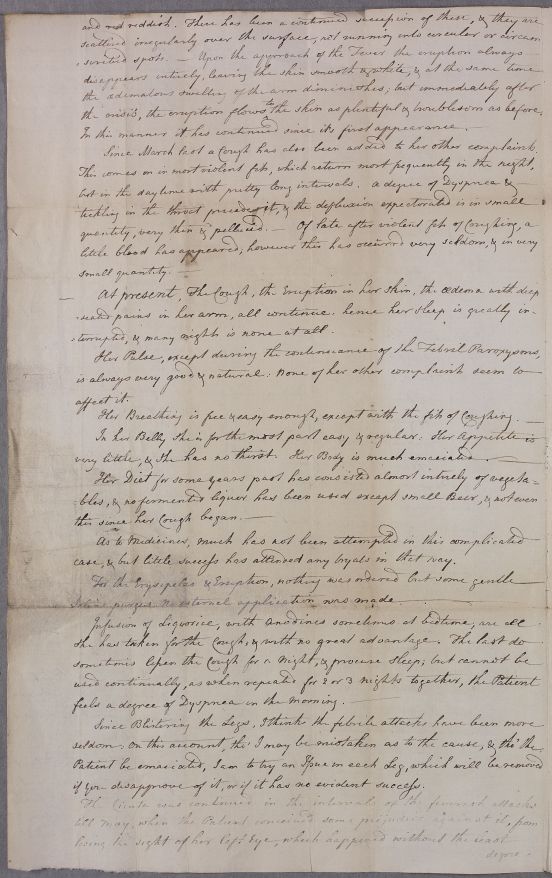 and red reddish. There has been a continued succession of these, & they are
scattered irregularly over the surface, not running into circular or circum
-scribed spots. — Upon the approach of the Fever the eruption always
disappears intirely, leaving the skin smooth & white, & at the same time
the ademalous swelling of the arm diminishes; but immediately after
the crisis, the eruption flows to the skin as plentiful & troublesom as before,
In this manner it has continued since its first appearance. —
Since March last a Cough has also been added to her other complaints.
This comes on in most violent fits, which return most frequently in the night,
but in the daytime with pretty long intervals. a degree of Dyspnea &
tickling in the throat precedes it, & the defluxion expectorated is in small
quantity, very thin & pellucid. — Of late after violent fits of Coughing, a
little blood has appeared, however this has occurred very seldom, & in very
small quantity.
At present, The Cough, the Eruption in her skin, the œdema with deep
-seated pains in her arm, all continue. hence her Sleep is greatly in-
-terrupted, & many nights is none at all.
Her Pulse, except during the continuance of the Febril Paroxysms,
is always very good & natural: None of her other complaints seem to
affect it.
Her Breathing is free & easy enough, except with the fits of Coughing. —
In her Belly she is for the most part easy & regular. Her Appetite is
very little, & she has no thirst. Her Body is much emaciated. —
Her Diet for some years past has consisted almost intirely of vegeta-
bles, & no fermented liquor has been used except small Beer, & not even
this since her Cough began. —
As to Medicines, much has not been attempted in this complicated
case, & but little success has attended any tryals in that way.
For the Erysipelas & Eruption, nothing was ordered but some gentle
Saline purges. No external application was made. —
Infusion of liquorice, with anodines sometimes at bedtime, are all
she has taken for the Cough, & with no great advantage. The last do
sometimes lessen the Cough for a Night, & procure Sleep; but cannot be
used continually, as when repeated for 2 or 3 nights together, the Patient
feels a degree of Dyspnea in the morning. —
Since Blistering the Legs, I think the febrile attacks have been more
seldom. On this account, tho' I may be mistaken as to the cause, & tho' the
Patient be emaciated, I am to try an Issue in each Leg, which will be removed
if you disapprove of it, or if it has no evident success.
The was continued in the intervals of the feverish attacks
till May, when the Patient conceived some prejudice against it, from
losing the sight of her left Eye, which happened without the least
degree